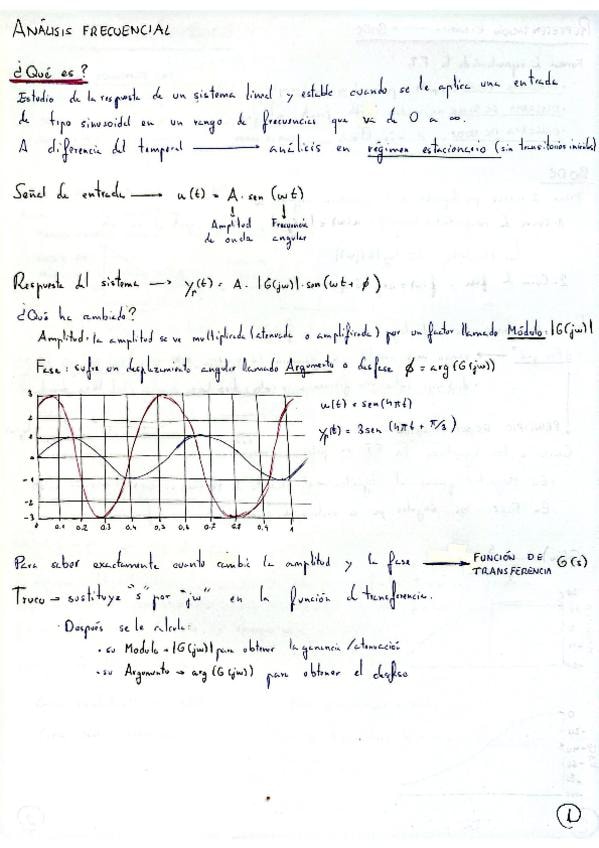 ANÁLISIS FRECUENCIAL
¿Qué es?
Estudio de la respuesta de un sistema lineal y estable cuando se le aplica una entrada
de tipo sinusoidal en un rango de frecuencias que va de 0 a ∞.
A diferencia del temporal → análisis en régimen estacionario (sin transitorios iniciales)
Señal de entrada → u(t) = A · sen (ωt)
↓ ↓
Amplitud Frecuencia
de onda angular
Respuesta del sistema → yₚ(t) = A · |G(jω)| · sen(ωt + φ)
¿Qué ha cambiado?
Amplitud: la amplitud se ve multiplicada (atenuada o amplificada) por un factor llamado Módulo |G(jω)|
Fase: sufre un desplazamiento angular llamado Argumento o desfase φ = arg(G(jω))
u(t) = sen(4πt)
yₚ(t) = 3sen(4πt + π/3)
3
2
1
0
-1
-2
-3
0 0.1 0.2 0.3 0.4 0.5 0.6 0.7 0.8 0.9 1
Para saber exactamente cuanto cambia la amplitud y la fase → FUNCIÓN DE TRANSFERENCIA G(s)
Truco → sustituye "s" por "jω" en la función d transferencia.
· Después se le calcula:
· su Modulo → |G(jω)| para obtener la ganancia/atenuación
· su Argumento → arg(G(jω)) para obtener el desfase
1